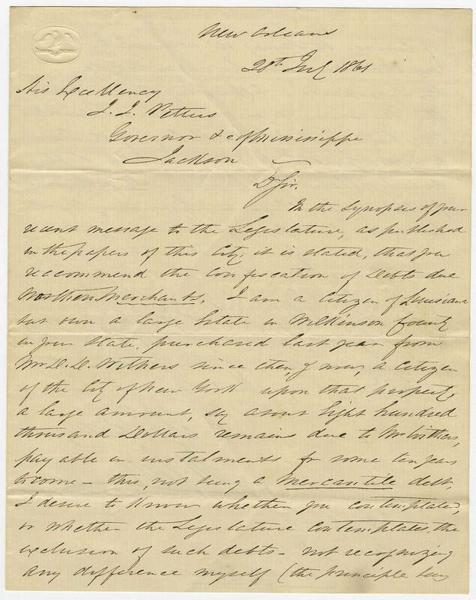 New Orleans
20th July 1861
His Excellency
J. J. Pettus
Governor &c of Mississippi
Jackson
D Sir.
In the Synopsis of your
recent message to the Legislature, as published
in the papers of this City, it is stated, that you
recommend the confiscation of Debts due
Northern Merchants. I am a Citizen of Louisiana
but own a large Estate in Wilkinson County
in your State, purchased last year from
Mr D. D. Withers since then & now, a citizen
of the City of New York upon that property,
a large amount, say about Eight hundred
thousand Dollars remains due to Mr Withers,
payable in instalments for some ten years
to come - this, not being a Mercantile debt,
I desire to know whether you contemplate,
or whether the Legislature contemplates, the
exclusion of such debts - not recognizing
any difference myself (the principle being